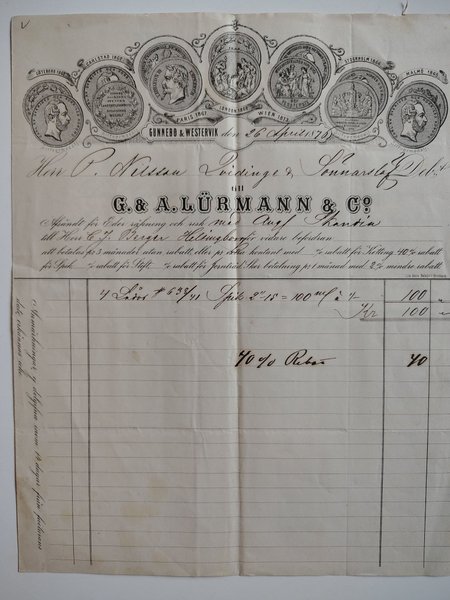 GÖTEBORG 1860
CARLSTAD 1862
PARIS 1867
LONDON 1862
WIEN 1873
STOCKHOLM 1866
MALMÖ 1865
GUNNEBO & WESTERVIK den 26 April 1876
Herr P. Nilsson Qvidinge & Sönnarslöf Debet
till
G. & A. LÜRMANN & Co
Afsändt för Eder räkning och risk med Ångf Skandia
till Herr C. J. Berger Helsingborg för vidare befordran
att betalas pr 3 månader utan rabatt, eller pr kontant med % rabatt för Ketting 40% rabatt
för Spik % rabatt för Stift % rabatt för förtenadt. Sker betalning pr 1 månad med 2% mindre rabatt.
4 Lådor # 638/41 Spik 2"-15 = 100 à 100 "
Kr 100 "
40 % Rabatt 40
Anmärkningar ej delgifna inom 14 dagar från fakturans
dato erkännas icke